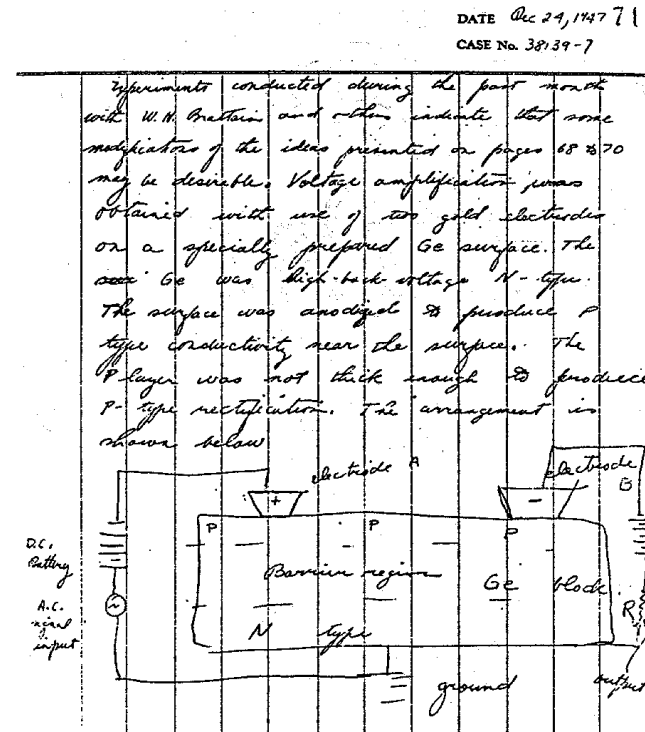 DATE Dec 24, 1947 71
CASE No. 38139-7
Experiments conducted during the past month
with W. H. Brattain and others indicate that some
modifications of the ideas presented on pages 68 to 70
may be desirable. Voltage amplification was
obtained with use of two gold electrodes
on a specially prepared Ge surface. The
Ge was high-back-voltage N-type.
The surface was anodized to produce P
type conductivity near the surface. The
P layer was not thick enough to produce
P-type rectification. The arrangement is
shown below
electrode A
electrode B
+
-
P P P
D.C. Battery
Barrier region
Ge block
A.C. signal input
R
N type
output
ground